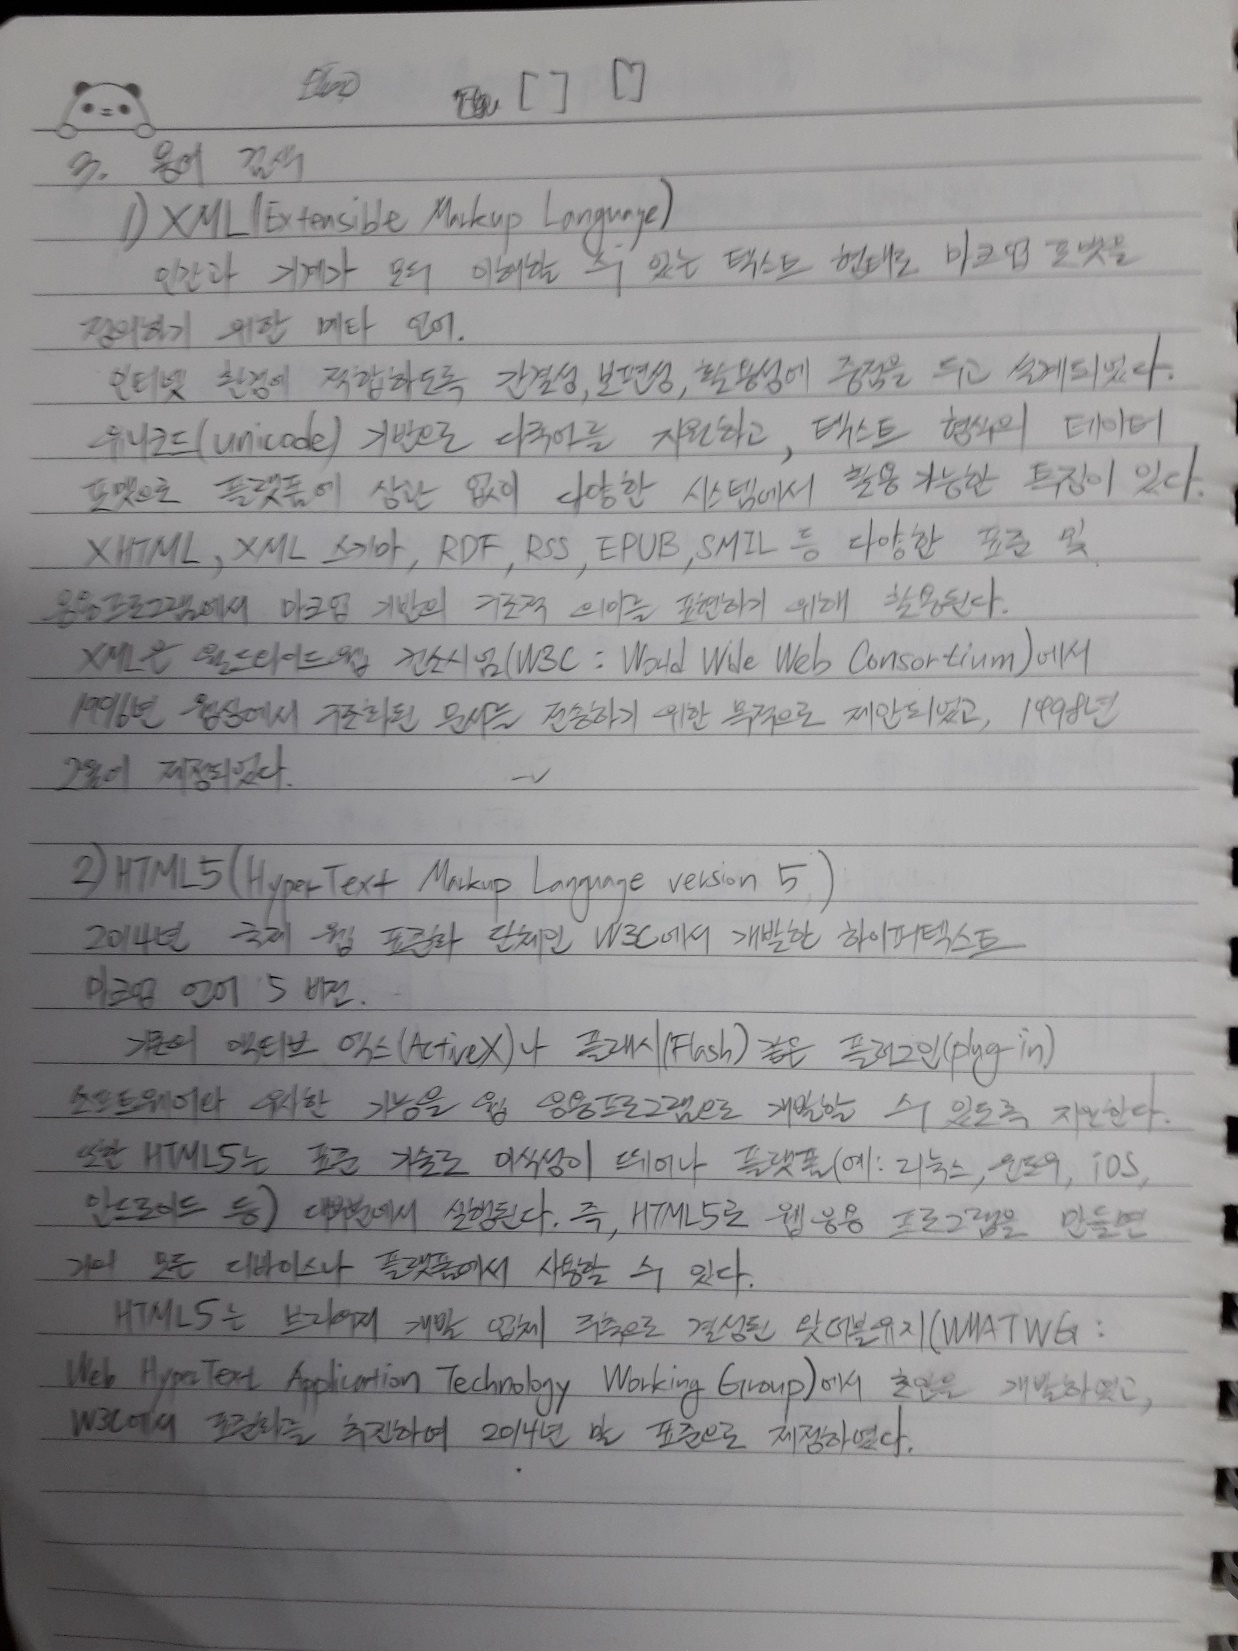 [ ] [ ]
3. 용어 검색
1) XML(Extensible Markup Language)
인간과 기계가 모두 이해할 수 있는 텍스트 형태로 마크업 포맷을
정의하기 위한 메타 언어.
인터넷 환경에 적합하도록 간결성, 보편성, 활용성에 중점을 두고 설계되었다.
유니코드(unicode) 기반으로 다국어를 지원하고, 텍스트 형식의 데이터
포맷으로 플랫폼에 상관 없이 다양한 시스템에서 활용 가능한 특징이 있다.
XHTML, XML 스키마, RDF, RSS, EPUB, SMIL 등 다양한 표준 및
응용프로그램에서 마크업 기반의 구조적 의미를 표현하기 위해 활용된다.
XML은 월드와이드웹 컨소시엄(W3C : World Wide Web Consortium)에서
1996년 웹상에서 구조화된 문서를 전송하기 위한 목적으로 제안되었고, 1998년
2월에 제정되었다.
2) HTML5(HyperText Markup Language version 5)
2014년 국제 웹 표준화 단체인 W3C에서 개발한 하이퍼텍스트
마크업 언어 5 버전.
기존의 액티브 엑스(ActiveX)나 플래시(Flash) 같은 플러그인(plug-in)
소프트웨어와 유사한 기능을 웹 응용프로그램으로 개발할 수 있도록 지원한다.
또한 HTML5는 표준 기술로 이식성이 뛰어나 플랫폼(예: 리눅스, 윈도우, iOS,
안드로이드 등) 대부분에서 실행된다. 즉, HTML5로 웹 응용 프로그램을 만들면
거의 모든 디바이스나 플랫폼에서 사용할 수 있다.
HTML5는 브라우저 개발 업체 위주로 결성된 왓더블유지(WHATWG :
Web HyperText Application Technology Working Group)에서 초안을 개발하였고,
W3C에서 표준화를 추진하여 2014년 말 표준으로 제정하였다.